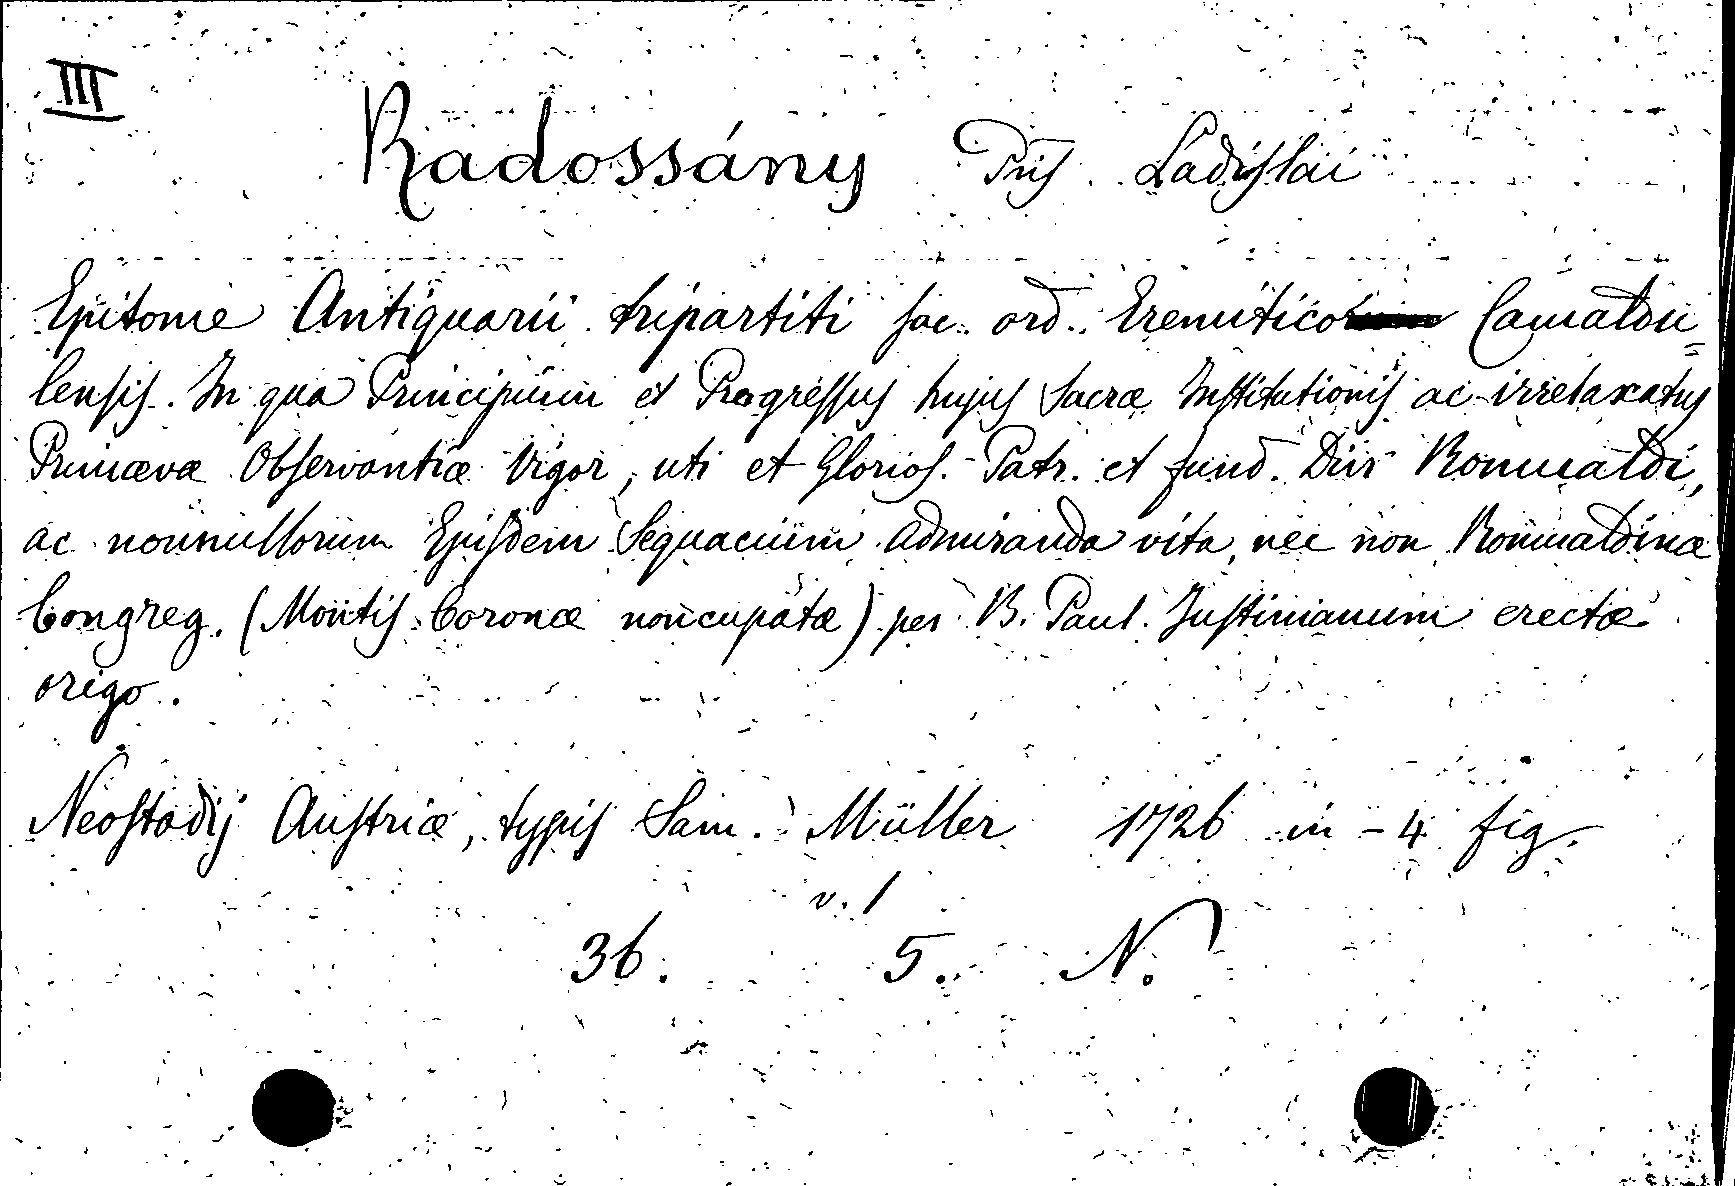 III
Radossány Pris Ladislai
Epitome Antiquarii tripartiti sac. ord. Eremitico Camaldu=
lensis. In qua Principium et Progressus hujus Sacræ Institutionis ac irrelaxatus
Primævæ Observantiæ Vigor, uti et Glorios. Patr. et fund. Divi Romualdi,
ac nonnullorum Ejusdem Sequacium admiranda vita, nec non Romualdinæ
Congreg. (Montis Coronæ noncupatæ) per B. Paul. Justinianum erectæ
origo.
Neostadij Austriæ, typis Sam. Müller 1726 in-4 fig.
v. 1
36. 5. N.